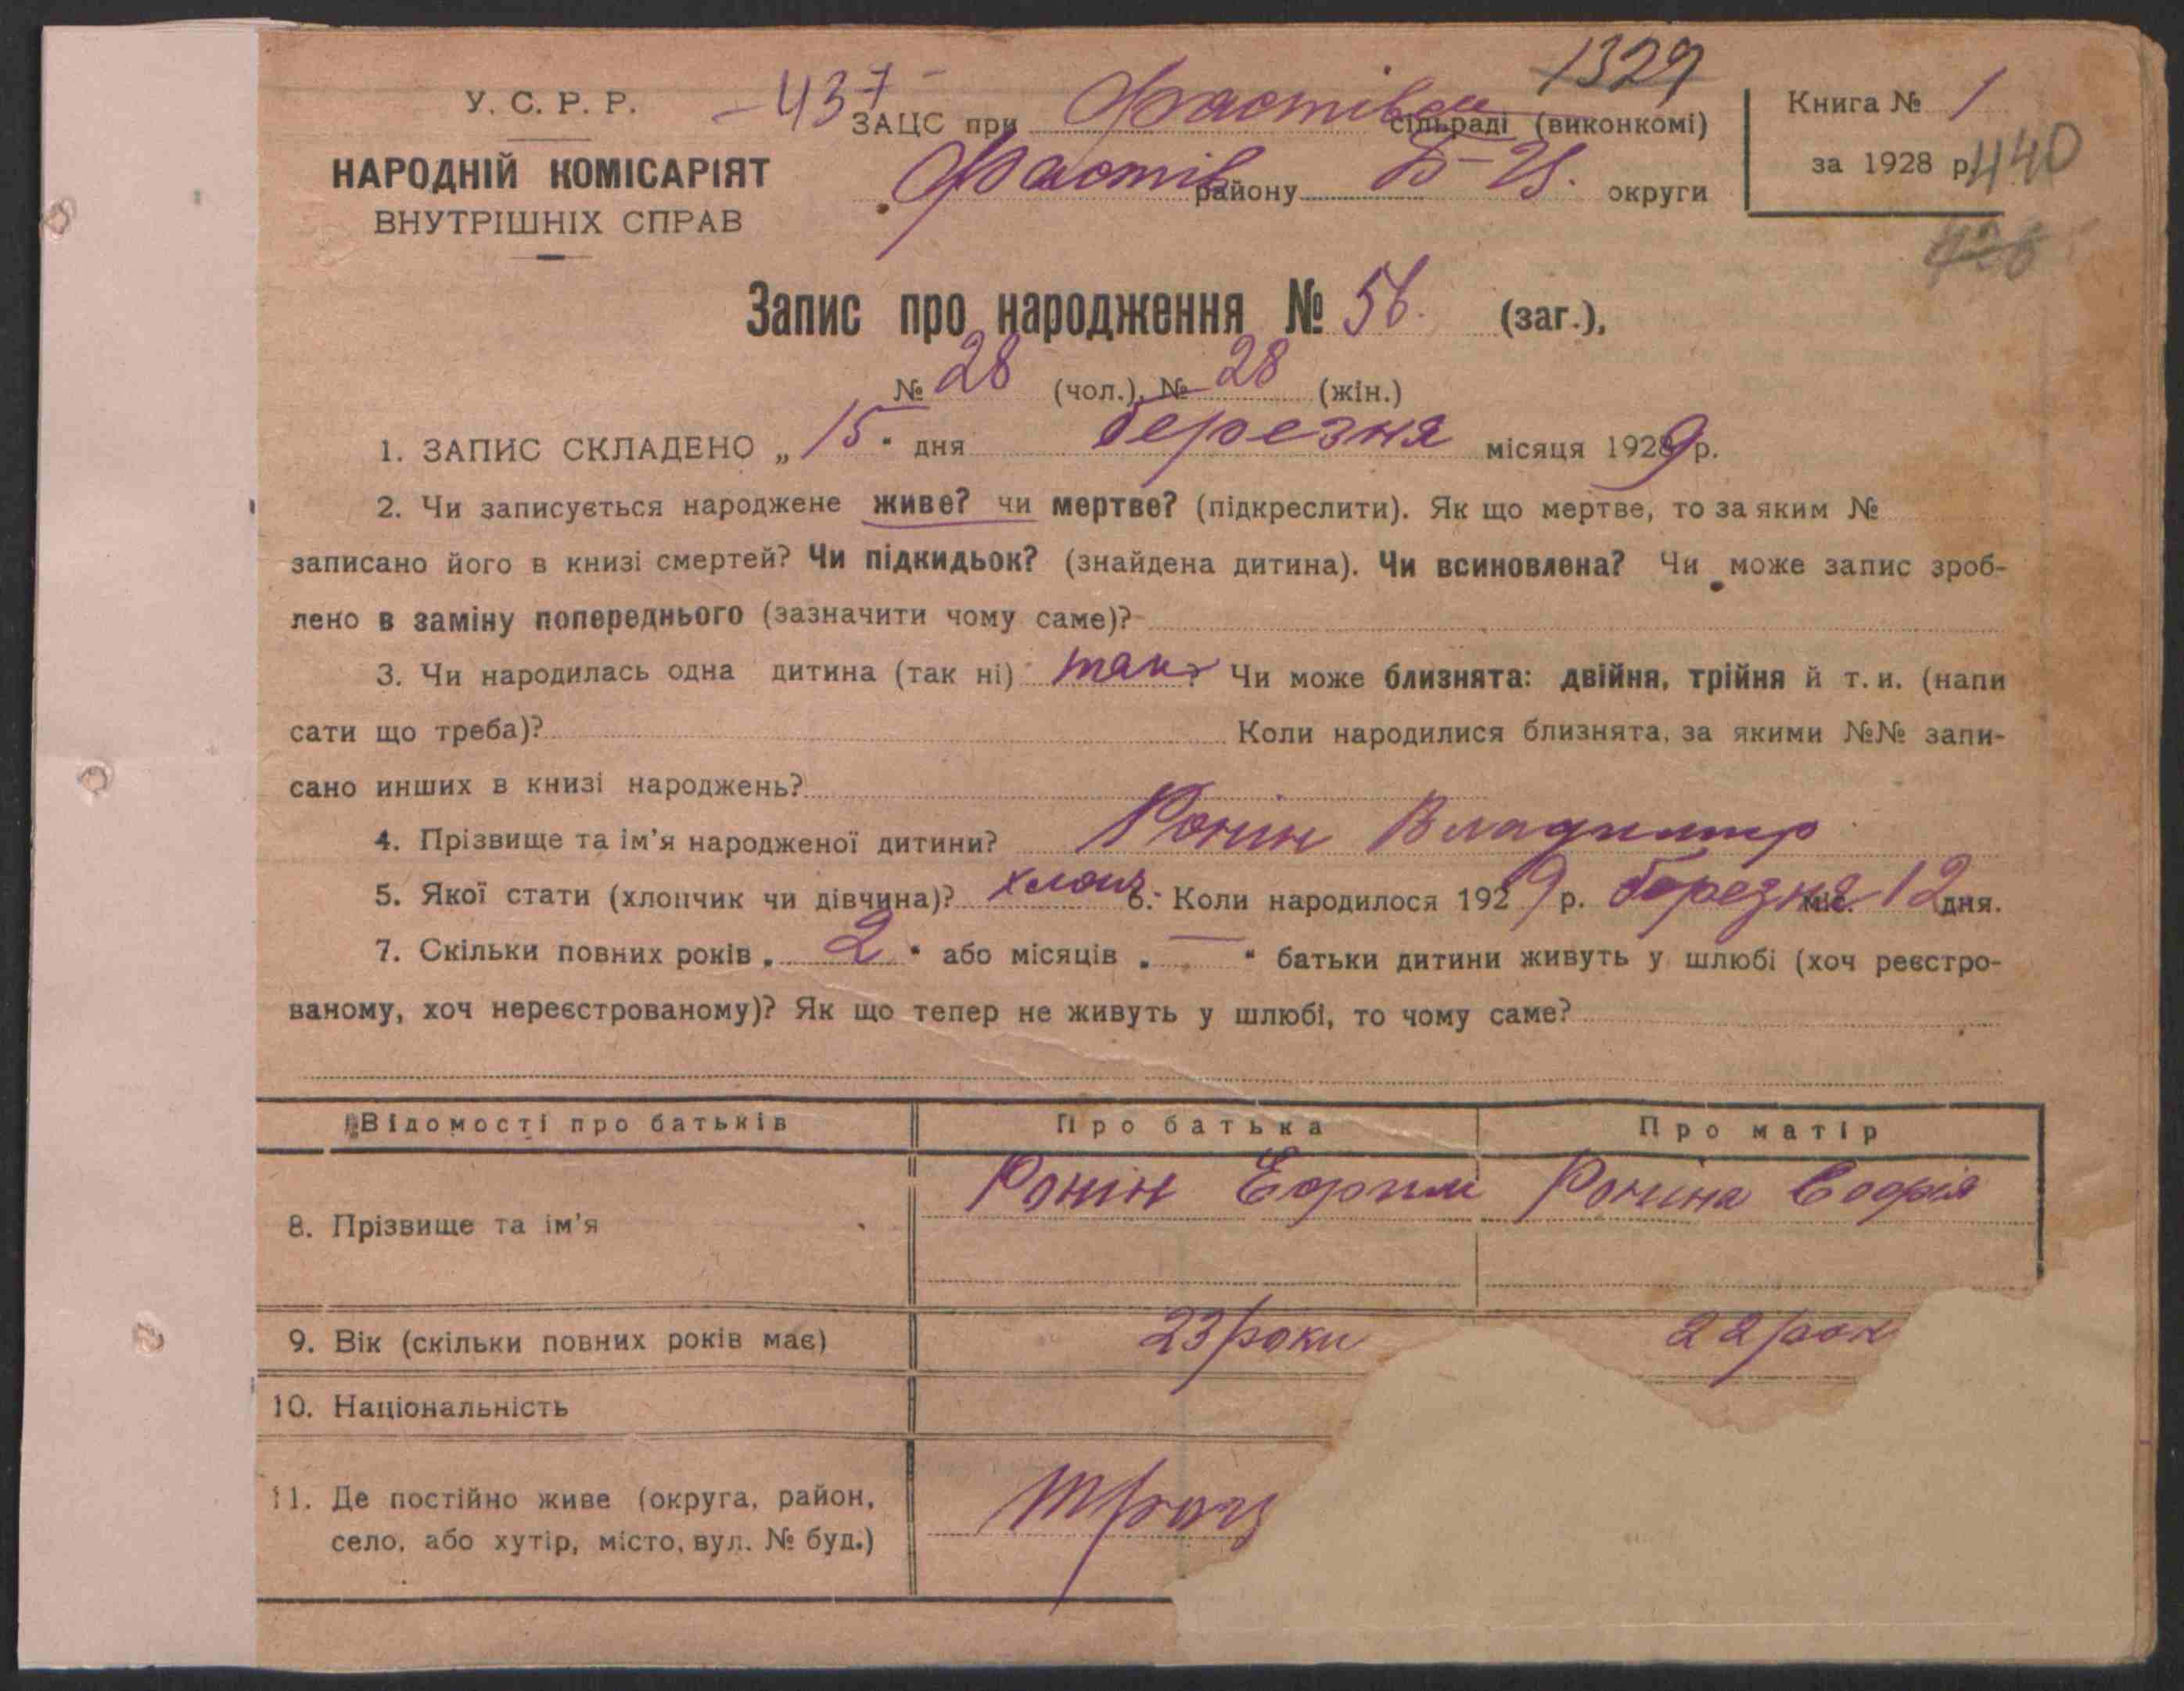 1329
У. С. Р. Р.
-437-
ЗАЦС при Фастівськ сільраді (виконкомі)
Книга № 1
НАРОДНІЙ КОМІСАРІЯТ
Фастів району Б-Ц. округи
за 1928 р.
440
ВНУТРІШНІХ СПРАВ
Запис про народження № 56. (заг.),
№ 28 (чол.), № 28 (жін.)
1. ЗАПИС СКЛАДЕНО „ 15 " дня березня місяця 1929 р.
2. Чи записується народжене живе? чи мертве? (підкреслити). Як що мертве, то за яким №
записано його в книзі смертей? Чи підкидьок? (знайдена дитина). Чи всиновлена? Чи може запис зроб-
лено в заміну попереднього (зазначити чому саме)?
3. Чи народилась одна дитина (так ні) так? Чи може близнята: двійня, трійня й т. и. (напи
сати що треба)? Коли народилися близнята, за якими №№ запи-
сано инших в книзі народжень?
4. Прізвище та ім'я народженої дитини? Ронін Владимир
5. Якої стати (хлопчик чи дівчина)? хлопч. 6. Коли народилося 1929 р. березня міс. 12 дня.
7. Скільки повних років „ 2 " або місяців „ — " батьки дитини живуть у шлюбі (хоч реєстро-
ваному, хоч нереєстрованому)? Як що тепер не живуть у шлюбі, то чому саме?
Відомості про батьків Про батька Про матір
8. Прізвище та ім'я Ронін Ефрим Роніна Софія
9. Вік (скільки повних років має) 23 роки 22 рок
10. Національність
11. Де постійно живе (округа, район,
село, або хутір, місто, вул. № буд.)